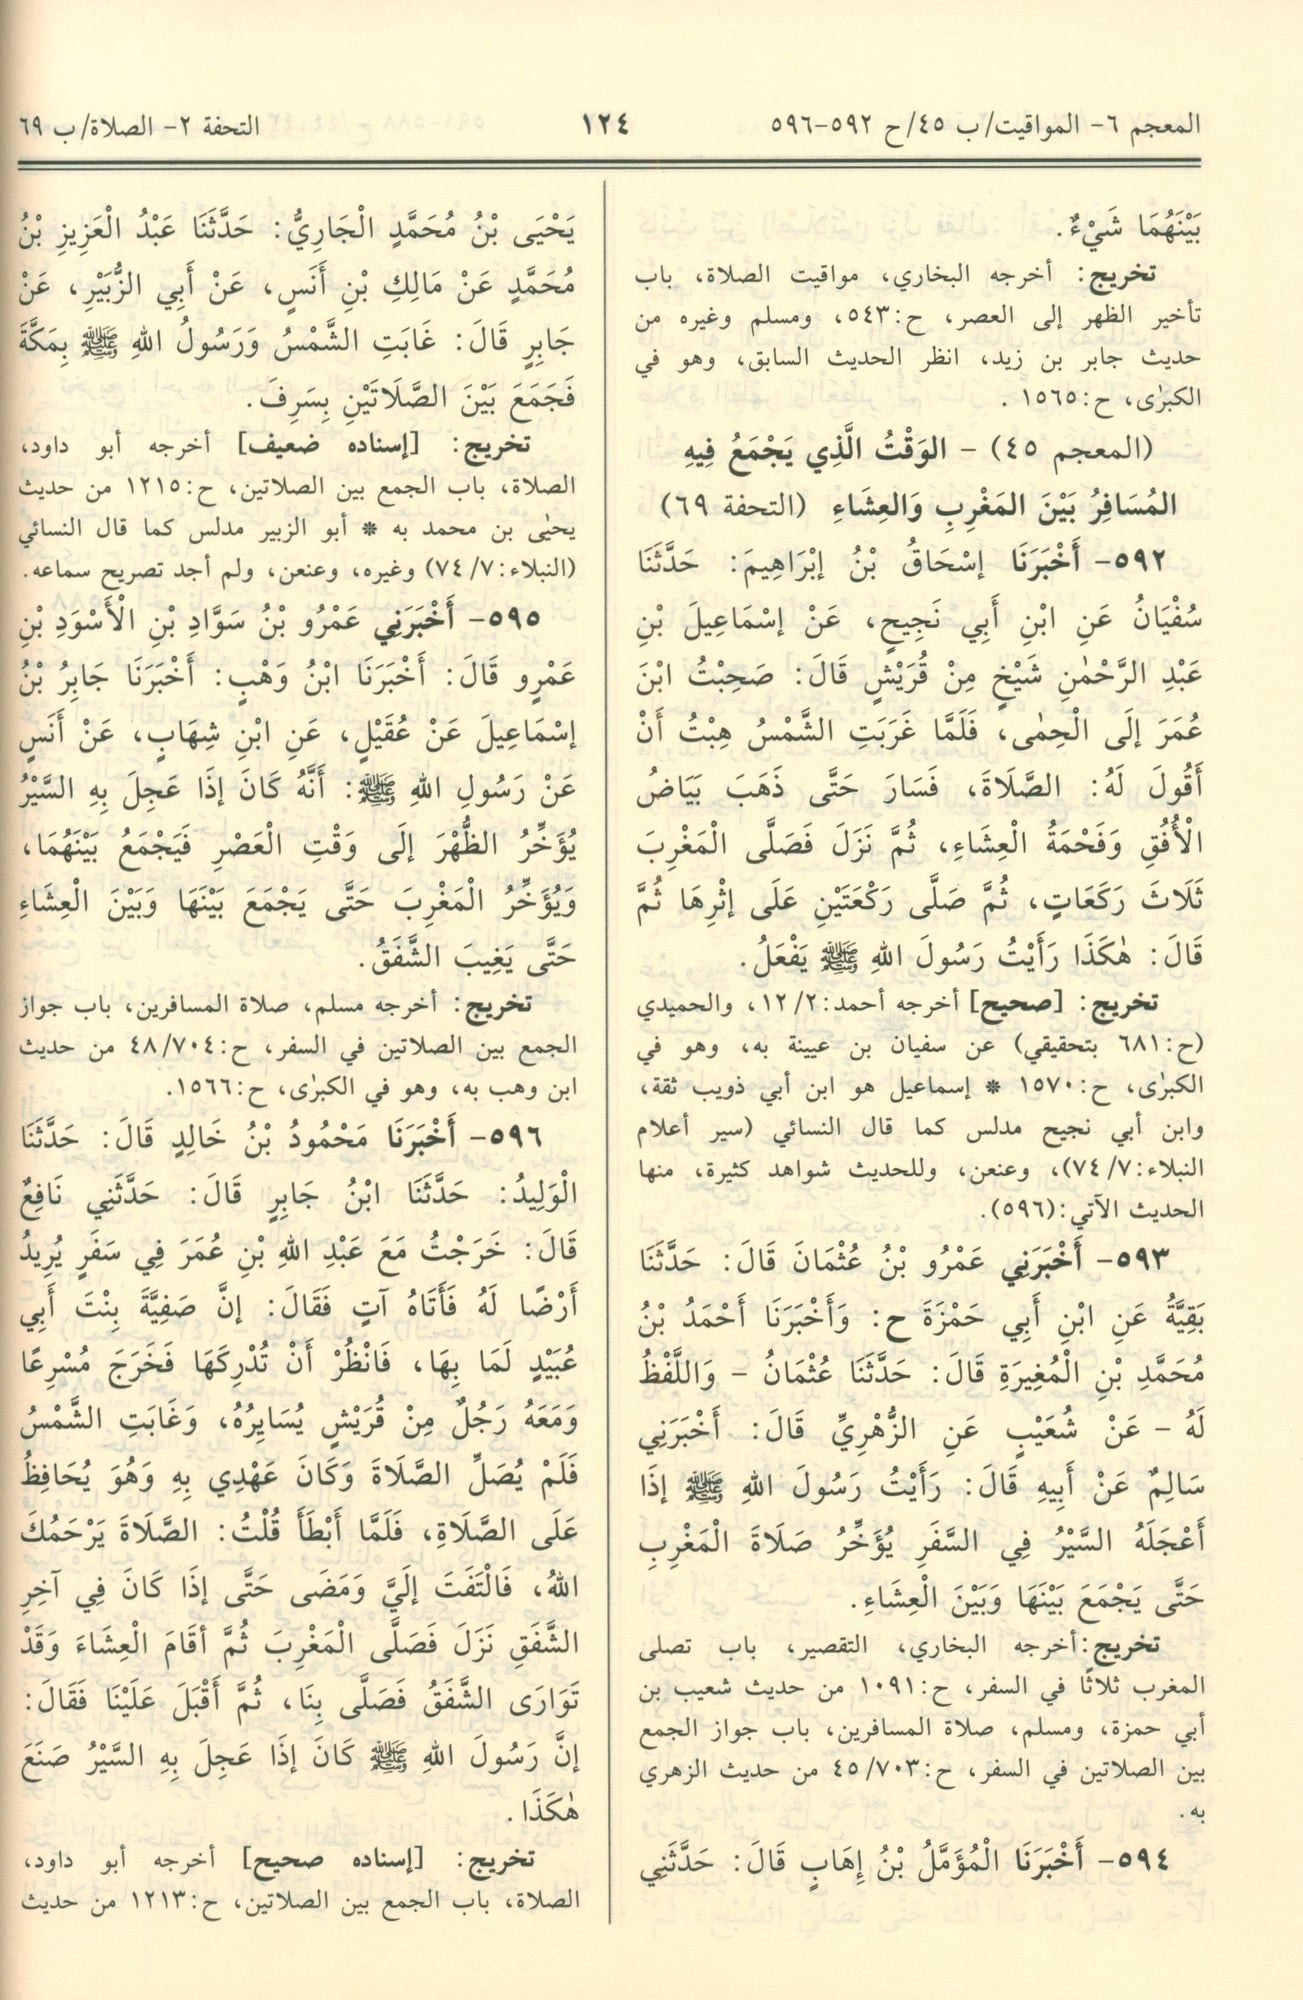 المعجم ٦- المواقيت/ ب ٤٥/ ح ٥٩٢-٥٩٦
١٢٤
التحفة ٢- الصلاة/ ب ٦٩
بَيْنَهُمَا شَيْءٌ.
تخريج: أخرجه البخاري، مواقيت الصلاة، باب
تأخير الظهر إلى العصر، ح:٥٤٣، ومسلم وغيره من
حديث جابر بن زيد، انظر الحديث السابق، وهو في
الكبرٰى، ح:١٥٦٥ .
(المعجم ٤٥) - الوَقْتُ الَّذِي يَجْمَعُ فِيهِ
المُسَافِرُ بَيْنَ المَغْرِبِ وَالعِشَاءِ (التحفة ٦٩)
٥٩٢- أَخْبَرَنَا إِسْحَاقُ بْنُ إِبْرَاهِيمَ: حَدَّثَنَا
سُفْيَانُ عَنِ ابْنِ أَبِي نَجِيحٍ، عَنْ إِسْمَاعِيلَ بْنِ
عَبْدِ الرَّحْمٰنِ شَيْخٍ مِنْ قُرَيْشٍ قَالَ: صَحِبْتُ ابْنَ
عُمَرَ إِلَى الْحِمٰى، فَلَمَّا غَرَبَتِ الشَّمْسُ هِبْتُ أَنْ
أَقُولَ لَهُ: الصَّلَاةَ، فَسَارَ حَتَّى ذَهَبَ بَيَاضُ
الْأُفُقِ وَفَحْمَةُ الْعِشَاءِ، ثُمَّ نَزَلَ فَصَلَّى الْمَغْرِبَ
ثَلَاثَ رَكَعَاتٍ، ثُمَّ صَلَّى رَكْعَتَيْنِ عَلَى إِثْرِهَا ثُمَّ
قَالَ: هٰكَذَا رَأَيْتُ رَسُولَ اللهِ ﷺ يَفْعَلُ.
تخريج: [صحيح] أخرجه أحمد:٢/ ١٢، والحميدي
(ح:٦٨١ بتحقيقي) عن سفيان بن عيينة به، وهو في
الكبرٰى، ح:١٥٧٠ * إسماعيل هو ابن أبي ذويب ثقة،
وابن أبي نجيح مدلس كما قال النسائي (سير أعلام
النبلاء:٧/ ٧٤)، وعنعن، وللحديث شواهد كثيرة، منها
الحديث الآتي:(٥٩٦).
٥٩٣- أَخْبَرَنِي عَمْرُو بْنُ عُثْمَانَ قَالَ: حَدَّثَنَا
بَقِيَّةُ عَنِ ابْنِ أَبِي حَمْزَةَ ح: وَأَخْبَرَنَا أَحْمَدُ بْنُ
مُحَمَّدِ بْنِ الْمُغِيرَةِ قَالَ: حَدَّثَنَا عُثْمَانُ - وَاللَّفْظُ
لَهُ - عَنْ شُعَيْبٍ عَنِ الزُّهْرِيِّ قَالَ: أَخْبَرَنِي
سَالِمٌ عَنْ أَبِيهِ قَالَ: رَأَيْتُ رَسُولَ اللهِ ﷺ إِذَا
أَعْجَلَهُ السَّيْرُ فِي السَّفَرِ يُؤَخِّرُ صَلَاةَ الْمَغْرِبِ
حَتَّى يَجْمَعَ بَيْنَهَا وَبَيْنَ الْعِشَاءِ.
تخريج:أخرجه البخاري، التقصير، باب تصلى
المغرب ثلاثًا في السفر، ح:١٠٩١ من حديث شعيب بن
أبي حمزة، ومسلم، صلاة المسافرين، باب جواز الجمع
بين الصلاتين في السفر، ح:٧٠٣/ ٤٥ من حديث الزهري
به.
٥٩٤- أَخْبَرَنَا الْمُؤَمَّلُ بْنُ إِهَابٍ قَالَ: حَدَّثَنِي
يَحْيَى بْنُ مُحَمَّدٍ الْجَارِيُّ: حَدَّثَنَا عَبْدُ الْعَزِيزِ بْنُ
مُحَمَّدٍ عَنْ مَالِكِ بْنِ أَنَسٍ، عَنْ أَبِي الزُّبَيْرِ، عَنْ
جَابِرٍ قَالَ: غَابَتِ الشَّمْسُ وَرَسُولُ اللهِ ﷺ بِمَكَّةَ
فَجَمَعَ بَيْنَ الصَّلَاتَيْنِ بِسَرِفَ.
تخريج: [إسناده ضعيف] أخرجه أبو داود،
الصلاة، باب الجمع بين الصلاتين، ح:١٢١٥ من حديث
يحيٰى بن محمد به * أبو الزبير مدلس كما قال النسائي
(النبلاء:٧/ ٧٤) وغيره، وعنعن، ولم أجد تصريح سماعه.
٥٩٥- أَخْبَرَنِي عَمْرُو بْنُ سَوَّادِ بْنِ الْأَسْوَدِ بْنِ
عَمْرٍو قَالَ: أَخْبَرَنَا ابْنُ وَهْبٍ: أَخْبَرَنَا جَابِرُ بْنُ
إِسْمَاعِيلَ عَنْ عُقَيْلٍ، عَنِ ابْنِ شِهَابٍ، عَنْ أَنَسٍ
عَنْ رَسُولِ اللهِ ﷺ: أَنَّهُ كَانَ إِذَا عَجِلَ بِهِ السَّيْرُ
يُؤَخِّرُ الظُّهْرَ إِلَى وَقْتِ الْعَصْرِ فَيَجْمَعُ بَيْنَهُمَا،
وَيُؤَخِّرُ الْمَغْرِبَ حَتَّى يَجْمَعَ بَيْنَهَا وَبَيْنَ الْعِشَاءِ
حَتَّى يَغِيبَ الشَّفَقُ.
تخريج: أخرجه مسلم، صلاة المسافرين، باب جواز
الجمع بين الصلاتين في السفر، ح:٧٠٤/ ٤٨ من حديث
ابن وهب به، وهو في الكبرٰى، ح:١٥٦٦.
٥٩٦- أَخْبَرَنَا مَحْمُودُ بْنُ خَالِدٍ قَالَ: حَدَّثَنَا
الْوَلِيدُ: حَدَّثَنَا ابْنُ جَابِرٍ قَالَ: حَدَّثَنِي نَافِعٌ
قَالَ: خَرَجْتُ مَعَ عَبْدِ اللهِ بْنِ عُمَرَ فِي سَفَرٍ يُرِيدُ
أَرْضًا لَهُ فَأَتَاهُ آتٍ فَقَالَ: إِنَّ صَفِيَّةَ بِنْتَ أَبِي
عُبَيْدٍ لَمَا بِهَا، فَانْظُرْ أَنْ تُدْرِكَهَا فَخَرَجَ مُسْرِعًا
وَمَعَهُ رَجُلٌ مِنْ قُرَيْشٍ يُسَايِرُهُ، وَغَابَتِ الشَّمْسُ
فَلَمْ يُصَلِّ الصَّلَاةَ وَكَانَ عَهْدِي بِهِ وَهُوَ يُحَافِظُ
عَلَى الصَّلَاةِ، فَلَمَّا أَبْطَأَ قُلْتُ: الصَّلَاةَ يَرْحَمُكَ
اللهُ، فَالْتَفَتَ إِلَيَّ وَمَضَى حَتَّى إِذَا كَانَ فِي آخِرِ
الشَّفَقِ نَزَلَ فَصَلَّى الْمَغْرِبَ ثُمَّ أَقَامَ الْعِشَاءَ وَقَدْ
تَوَارَى الشَّفَقُ فَصَلَّى بِنَا، ثُمَّ أَقْبَلَ عَلَيْنَا فَقَالَ:
إِنَّ رَسُولَ اللهِ ﷺ كَانَ إِذَا عَجِلَ بِهِ السَّيْرُ صَنَعَ
هٰكَذَا.
تخريج: [إسناده صحيح] أخرجه أبو داود،
الصلاة، باب الجمع بين الصلاتين، ح:١٢١٣ من حديث